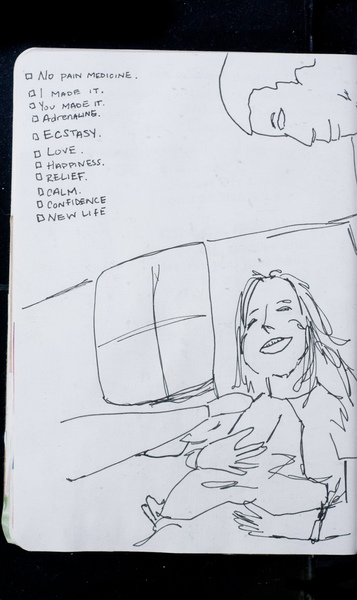 No PAIN MEDICINE.
I MADE IT.
YOU MADE IT.
ADRENALINE.
ECSTASY.
LOVE.
HAPPINESS.
RELIEF.
CALM.
CONFIDENCE
NEW LIFE